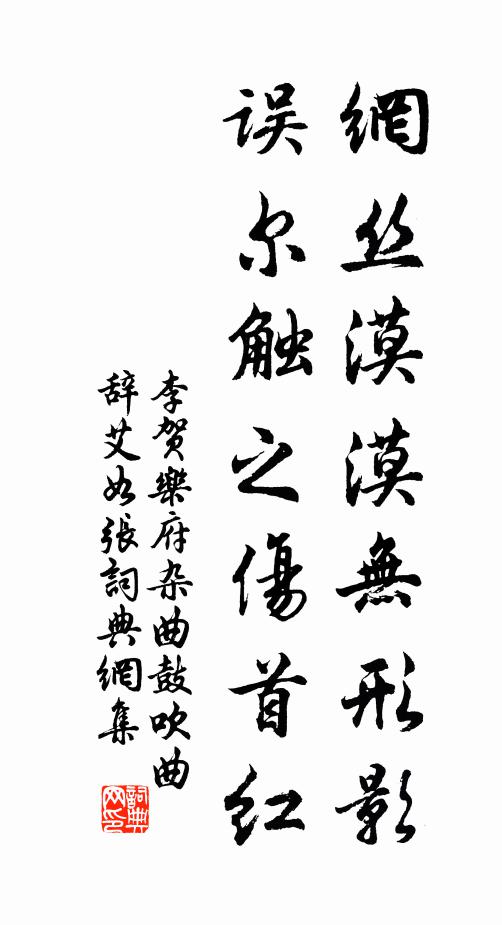 網丝漠漠無形影
误尔触之傷首红
李贺樂府杂曲鼓吹曲
辞艾如張詞典網集
詞典网印